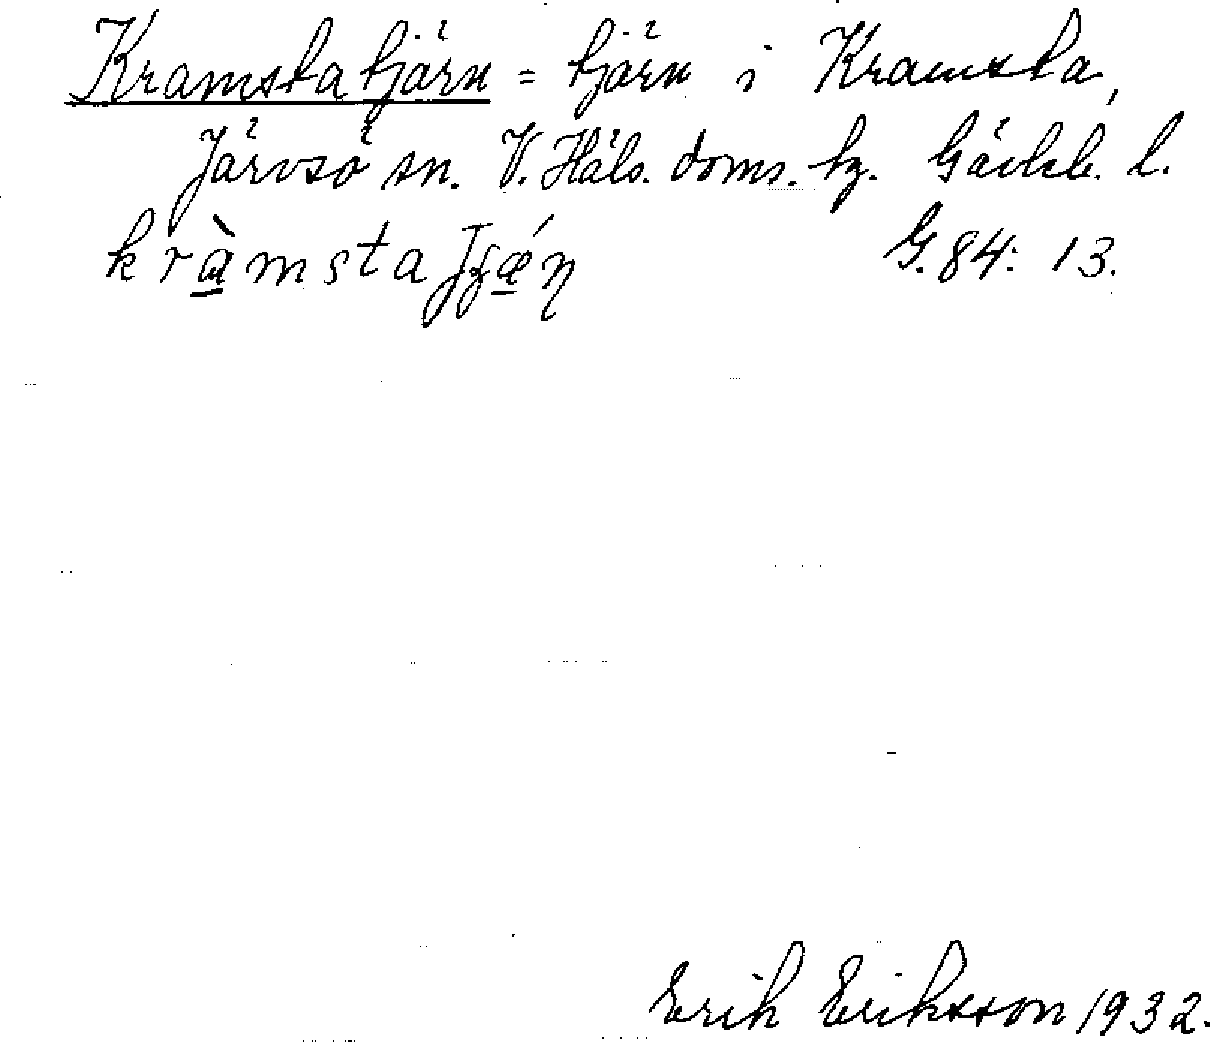 Kramstatjärn = tjärn i Kramsta,
Järvsö sn. V. Häls. doms. hz. Gävleb. l.
G. 84: 13.
Erik Eriksson 1932.